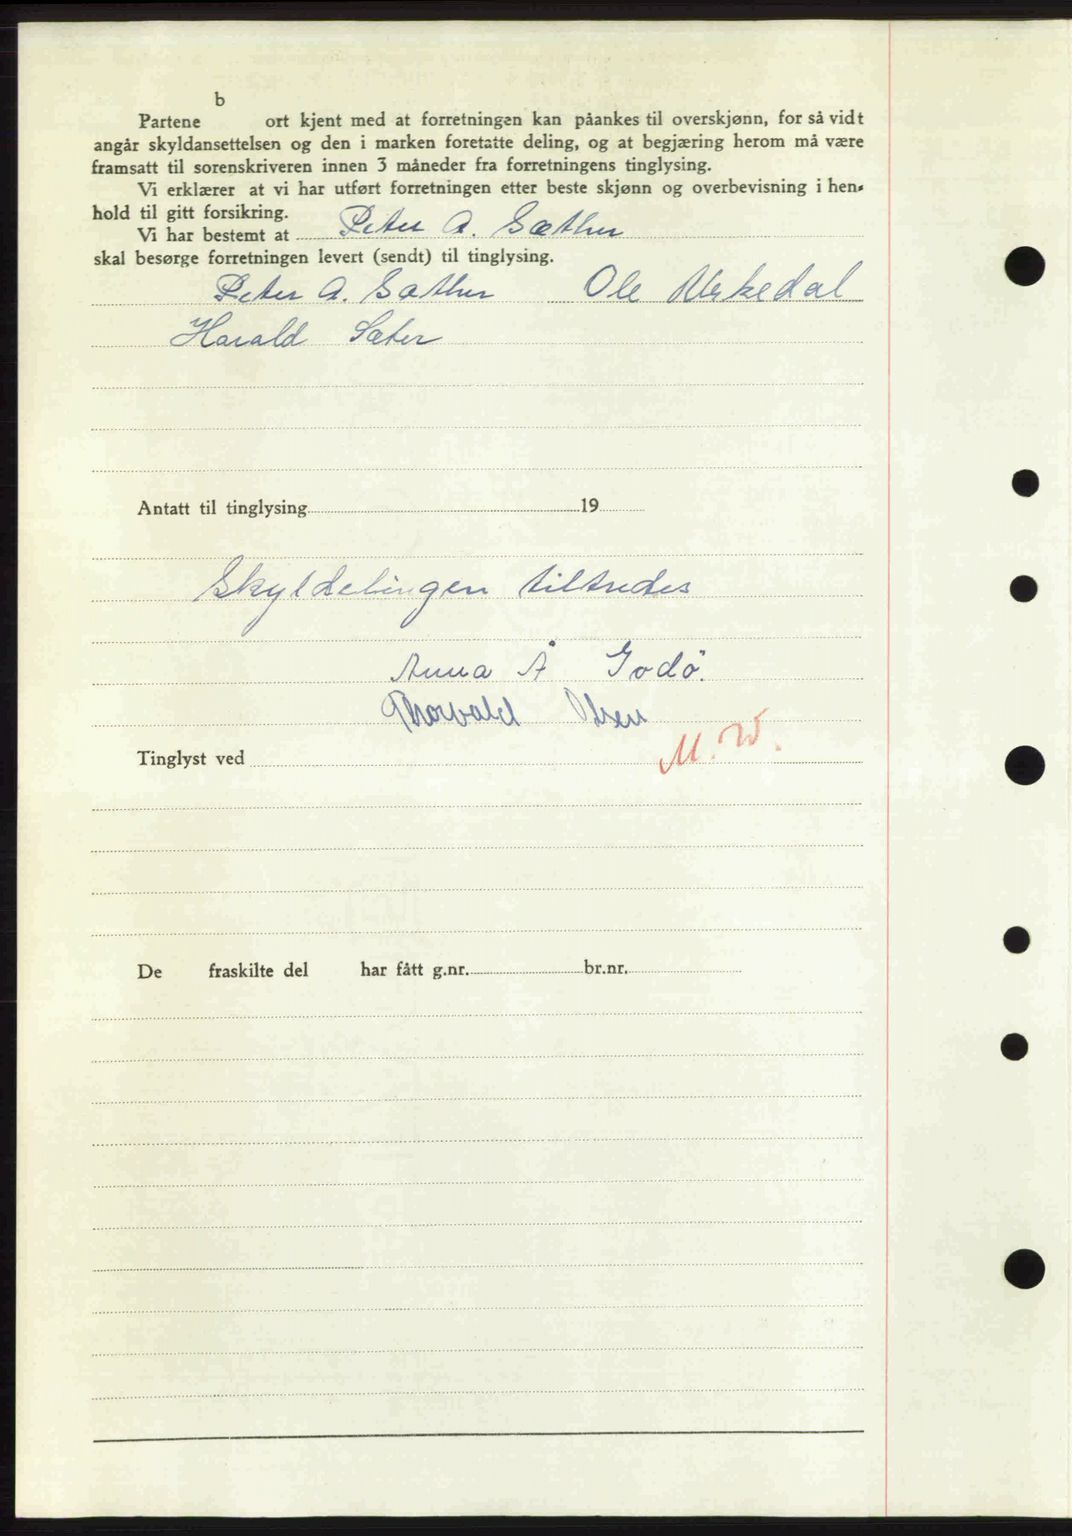 b
Partene ort kjent med at forretningen kan påankes til overskjønn, for så vidt
angår skyldansettelsen og den i marken foretatte deling, og at begjæring herom må være
framsatt til sorenskriveren innen 3 måneder fra forretningens tinglysing.
Vi erklærer at vi har utført forretningen etter beste skjønn og overbevisning i hen-
hold til gitt forsikring.
Vi har bestemt at Peter A. Sæther
skal besørge forretningen levert (sendt) til tinglysing.
Peter A. Sæther Ole Mykedal
Harald Sæter
Antatt til tinglysing 19
Skyldelingen tiltredes
Anna Å Godö.
Thorvald Olsen
M. W.
Tinglyst ved
De fraskilte del har fått g.nr. br.nr.